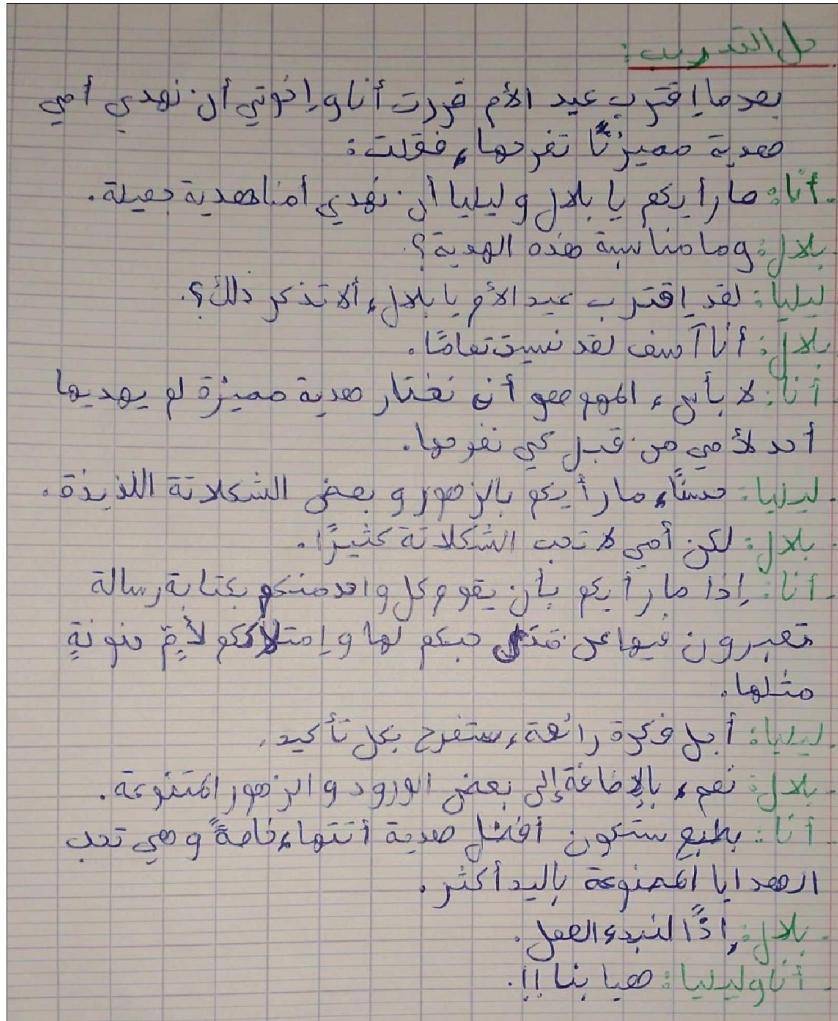 حل التدريب:
بعدما إقترب عيد الأم قررت أنا و إخوتي أن نهدي أمي
هدية مميزتًا تفرحها، فقلت:
أنا: ما رأيكم يا بلال و ليليا أن نهدي أمنا هدية جميلة.
بلال: وما مناسبة هذه الهدية؟
ليليا: لقد إقترب عيد الأم يا بلال، ألا تذكر ذلك؟.
بلال: أنا آسف لقد نسيت تمامًا.
أنا: لا بأس، المهم هو أن نختار هدية مميزة لم يهديها
أحد لأمي من قبل كي نفرحها.
ليليا: حسنًا، ما رأيكم بالزهور و بعض الشكلاتة اللذيذة.
بلال: لكن أمي لا تحب الشكلاتة كثيرًا.
أنا: إذا ما رأيكم بأن يقوم كل واحد منكم بكتابة رسالة
تعبرون فيها عن حبكم لها و إمتلاككم لأمٍ حنونةٍ
مثلها.
ليليا: أجل فكرة رائعة، ستفرح بكل تأكيد.
بلال: نعم، بالإضافة إلى بعض الورود و الزهور المتنوعة.
أنا: بطبع ستكون أفضل هدية أتتها، خاصةً و هي تحب
الهدايا المصنوعة باليد أكثر.
بلال: إذًا لنبدء العمل.
أنا وليليا: هيا بنا!!.